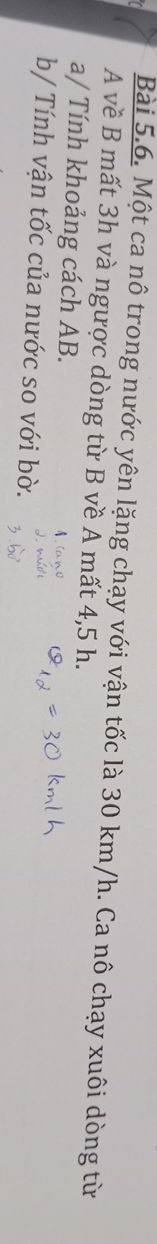 Bài 5.6. Một ca nô trong nước yên lặng chạy với vận tốc là 30 km/h. Ca nô chạy xuôi dòng từ
A về B mất 3h và ngược dòng từ B về A mất 4,5 h.
a/ Tính khoảng cách AB.
b/ Tính vận tốc của nước so với bờ.
1. cano
2. nước
3. bờ
v12 = 30 km/h